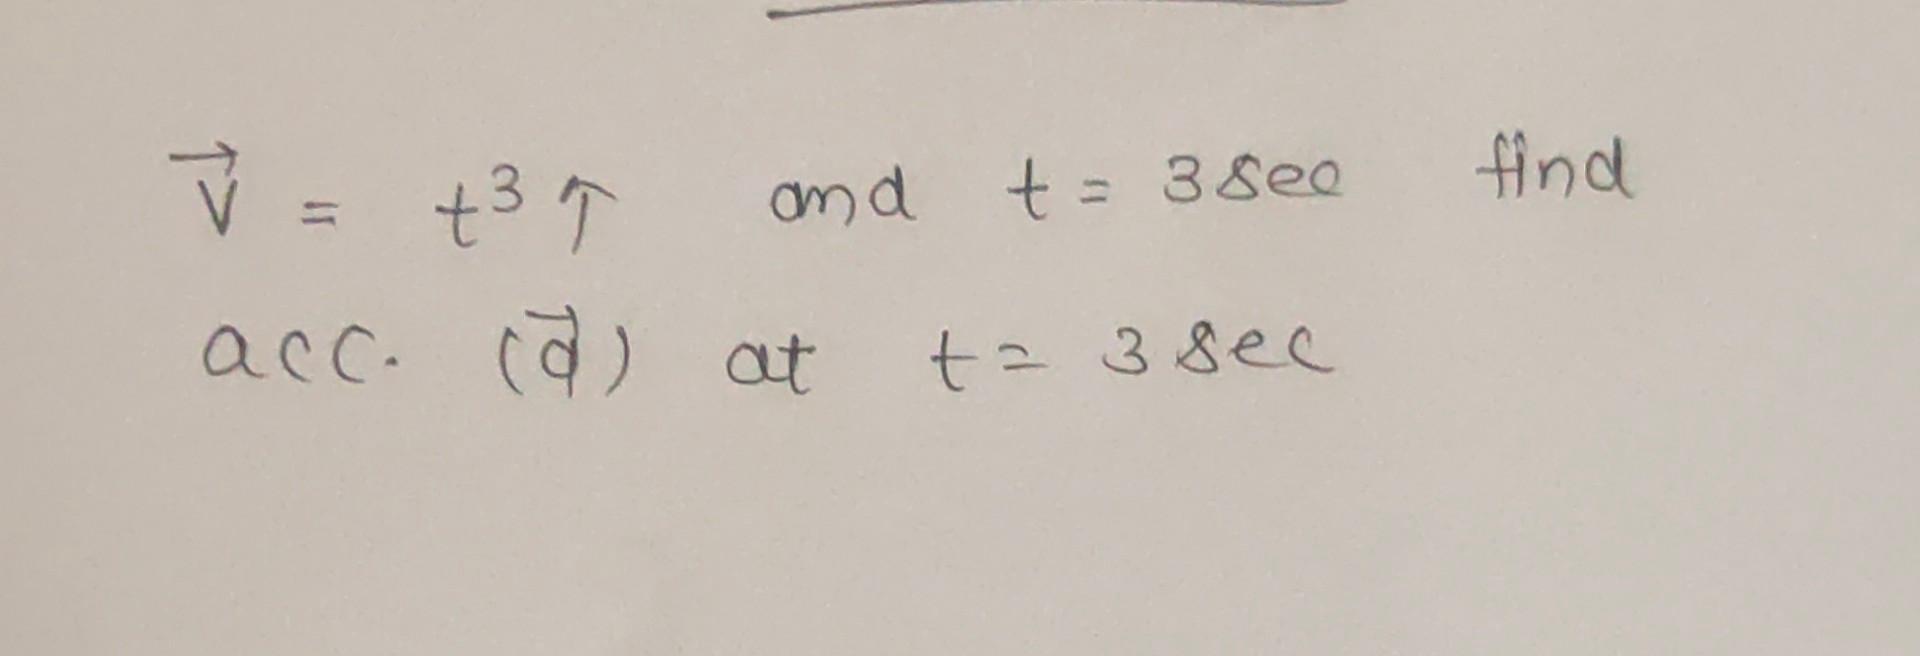 v⃗ = t³ î and t = 3 sec find
acc. (a⃗) at t = 3 sec